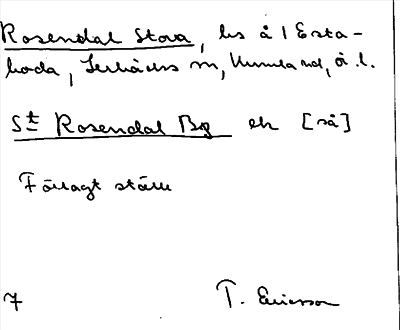 Rosendal Stora, hs å 1 Esta-
boda, Lerbäcks sn, Kumla hd, Ö.l.
St Rosendal Bg ek [så]
Förlagt ställe
7 T. Ericsson